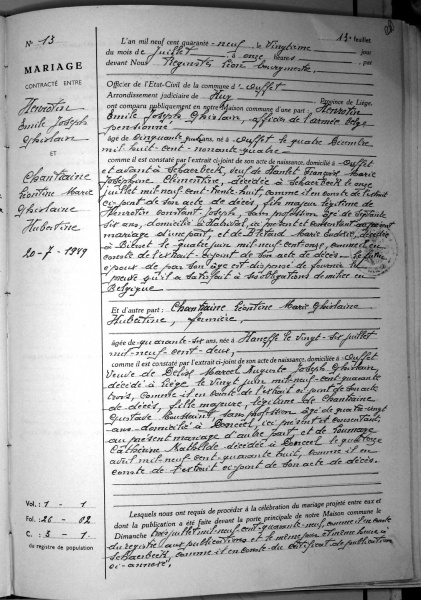 N° 13
MARIAGE
CONTRACTÉ ENTRE
Henrotin
Emile Joseph
Ghislain
ET
Chantraine
Léontine Marie
Ghislaine
Hubertine
20-7-1949
Vol. : 1 - 1
Fol. : 26 - 02
C. : 5 - 1.
du registre de population
13e feuillet
L'an mil neuf cent quarante-neuf, le vingtième jour
du mois de juillet à onze heures
devant Nous Léon Bourgmestre, par
Officier de l'Etat-Civil de la commune d'Ouffet
Arrondissement judiciaire de Huy Province de Liège,
ont comparu publiquement en notre Maison commune d'une part : Henrotin
Emile Joseph Ghislain, officier de l'armée belge
pensionné,
âgé de cinquante quatre ans, né à Ouffet le quatre Décembre
mil huit cent nonante quatre
comme il est constaté par l'extrait ci-joint de son acte de naissance, domicilié à Ouffet
et avant à Schaerbeek, veuf de François Marie
Joséphine Clémentine, décédée à Schaerbeek le onze
juillet mil neuf cent trente huit, comme il en conste de l'extrait
ci-joint de son acte de décès, fils majeur légitime de
Henrotin Constant Joseph, sans profession âgé de septante
six ans, domicilié à ci présent et consentant au présent
mariage d'une part, et de Marie décédée
à le quatre juin mil neuf cent onze, comme il en
conste de l'extrait ci-joint de son acte de décès - le futur
époux de par son âge est dispensé de fournir la
preuve qu'il a satisfait à ses obligations de milice en
Belgique
Et d'autre part : Chantraine Léontine Marie Ghislaine
Hubertine, fermière,
âgée de quarante-six ans, née à Haneffe le vingt-six juillet
mil-neuf-cent-deux,
comme il est constaté par l'extrait ci-joint de son acte de naissance, domiciliée à Ouffet
Veuve de Marcel Auguste Joseph Ghislain,
décédé à Liège le vingt juin mil-neuf-cent-quarante
trois, comme il en conste de l'extrait ci-joint de son acte
de décès, fille majeure, légitime de Chantraine
Gustave Toussaint, sans profession âgé de quatre-vingt
ans domicilié à Donceel, ici présent et consentant,
au présent mariage d'autre part et de
Catherine décédée à Donceel le quatorze
avril mil-neuf-cent-quarante huit, comme il en
conste de l'extrait ci-joint de son acte de décès.
Lesquels nous ont requis de procéder à la célébration du mariage projeté entre eux et
dont la publication a été faite devant la porte principale de notre Maison commune le
Dimanche trois juillet mil-neuf-cent-quarante-neuf, comme il en conste
du registre aux publications et le même jour et même heure à
Schaerbeek, comme il en conste du certificat de publication
ci-annexé,